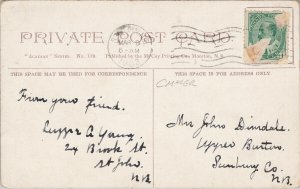 PRIVATE POST CARD
"ACADIAN" SERIES. No. 179.
Published by the McCoy Printing Co., Moncton, N.B.
THIS SPACE MAY BE USED FOR CORRESPONDENCE
THIS SPACE IS FOR ADDRESS ONLY
From your friend.
A Young.
24 Brook St.
St John.
N.B
Mrs John Dinsdale.
Upper Burton.
Sunbury Co.
N.B.